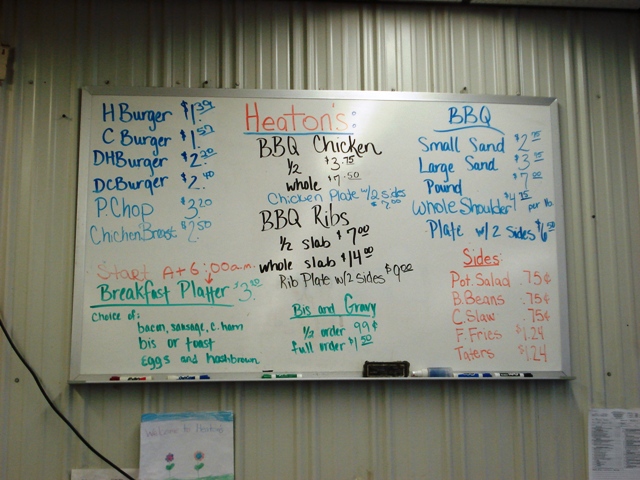 H Burger $1.39
C Burger $1.59
DHBurger $2.20
DCBurger $2.40
P.Chop $3.20
Chicken Breast $2.50
Start At 6:00a.m.
Breakfast Platter $3.50
Choice of:
bacon, sausage, c. ham
bis or toast
Eggs and hashbrown
Heaton's:
BBQ Chicken
1/2 $3.75
whole $7.50
Chicken Plate w/2 sides
$7.00
BBQ Ribs
1/2 slab $7.00
whole slab $14.00
Rib Plate w/2 sides $9.00
Bis and Gravy
1/2 order 99¢
full order $1.50
BBQ
Small Sand $2.75
Large Sand $3.25
Pound $7.00
Whole Shoulder $4.75 per lb
Plate w/2 Sides $6.50
Sides:
Pot. Salad .75¢
B. Beans .75¢
C. Slaw .75¢
F. Fries $1.24
Taters $1.24
Welcome to Heaton's